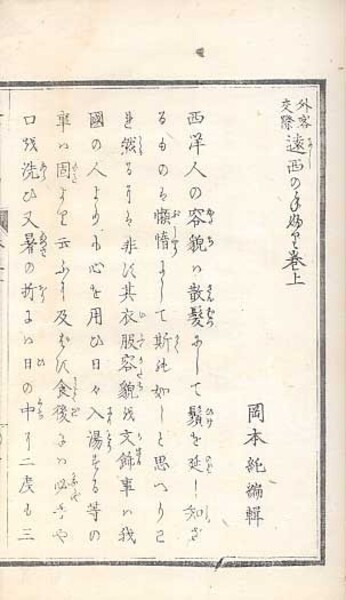 外客
交際
遠西のてぶり巻上
岡本純編輯
西洋人の容貌ハ散髪にして鬚を延し知ざ
るものは懶惰にして斯の如しと思へりこ
れ然るには非ず其衣服容貌を文飾事ハ我
國の人よりも心を用ひ日々入湯する等の
事ハ固より云ふに及ばず食後にハ必ず
口を洗ひ又暑の折にハ日の中に二度も三